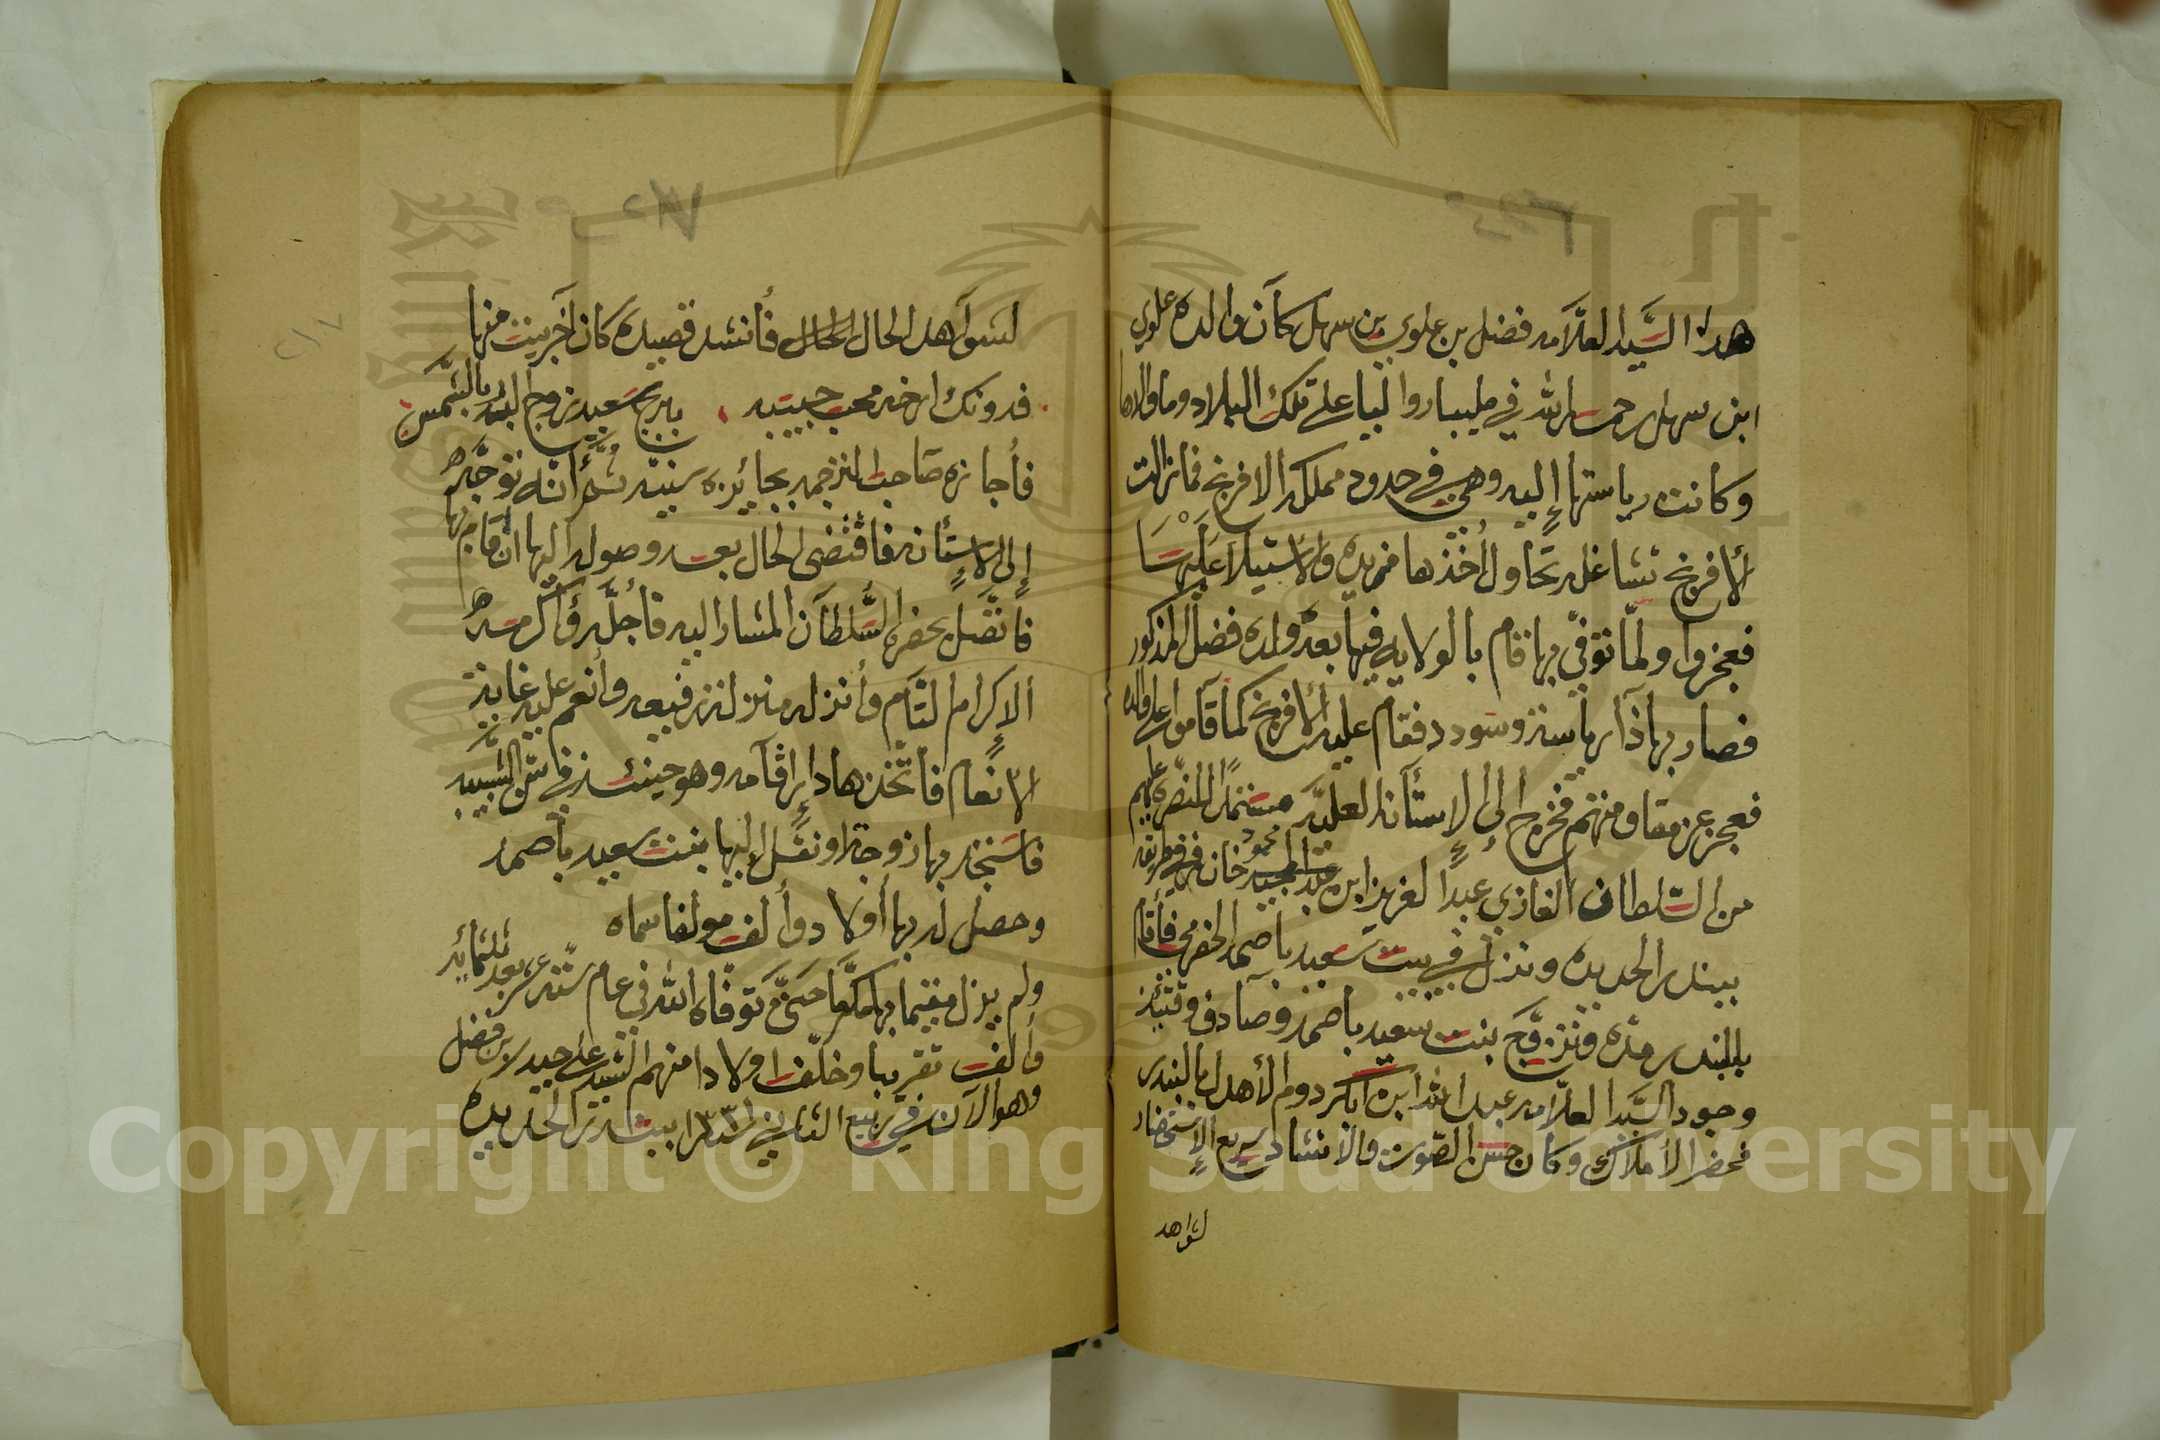 هذا السَّيد العلَّامه فضل بن علوي بن سهل كان والده علوي
ابن سهل رحمه الله في مليبار واليا على تلك البلاد وما والاها
وكانت رياستها إليه وهي في حدود مملكه الافرنج فما زالت
الافرنج تشاغله تحاول أخذها من يده والاستيلا عليها
فعجزوا ولمّا توفّي بها قام بالولايه فيها بعد ولده فضل المذكور
فصار بها ذا رياسة وسودد فقام عليه الافرنج كما قاموا على والده
فعجز عن مقاومتهم فخرج إلى الإستانه العليّه مستنجدًا للنصره عليهم
من السّلطان الغازي عبد العزيز ابن محمود خان فمر في طريقه
ببندر الحديده ونزل في بيت سعيد باصمد الحضرمي فأقام
بالبندر مدّه وتزوَّج بنت سعيد باصمد وصادف وقتئذ
وجود السَّيد العلّامه عبد الله ابن ابكر دوم الأهدل بالبندر
فحضر الأملاك وكان حسن الصّوت والأنشاد سريع الإستحضار
لشواهد
لشواهد الحال فأنشد قصيدة كان آخر بيت منها
فدونك ارخه محب حبيبه بابرج سعيد زوج البدر بالشَّمس
فأجازه صاحب الترجمه بجائزه سنيّه ثمَّ أنّه توجَّه
إلى الاستانه فاقتضى الحال بعد وصوله إليها ان قام بها
فاتّصل بحضرة السُّلطان المشار اليه فأجلَّه وأكرمه
الإكرام التام وأنزله منزلة رفيعه وأنعم عليه غاية
الإنعام فاتّخذها دار اقامه وهو حينئذ في سن الشبيبه
فاستجد بها زوجة ونقل إليها بنت سعيد باصمد
وحصل له بها أولاد وألف مولفا سماه
ولم يزل مقيما بها مكرَّما حتى توفّاه الله في عام ستّة عشر بعد ثلثمائه
وألف تقريبا وخلّف اولادا منهم السّيد علي حيدر بن فضل
وهو الآن في ربيع الثاني سنة ١٣٣٦ ببندر الحديده
Copyright © King Saud University